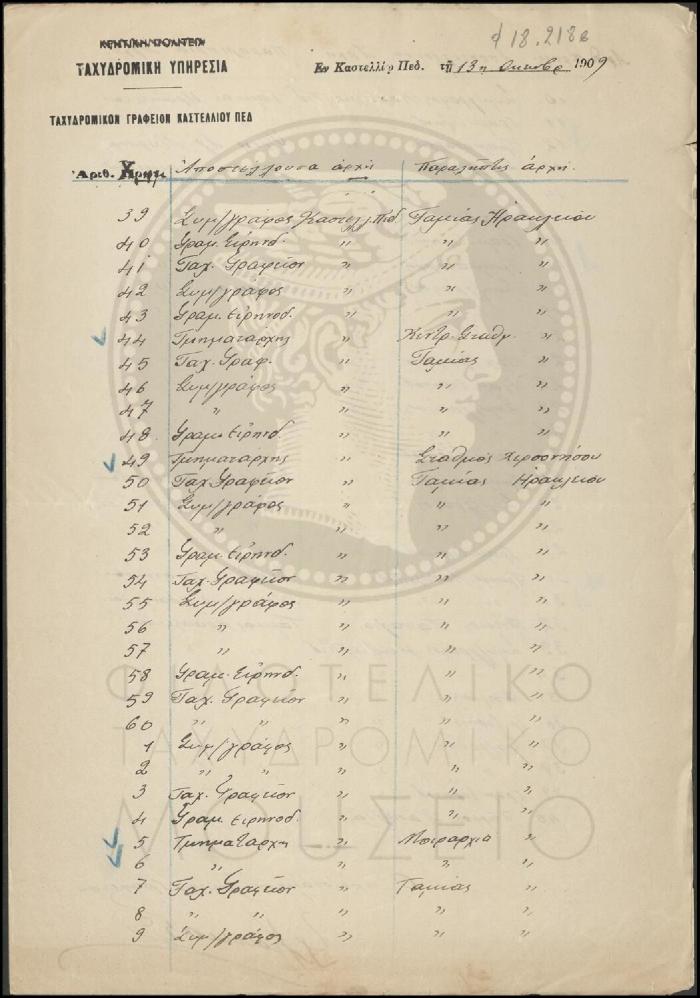 ΤΑΧΥΔΡΟΜΙΚΗ ΥΠΗΡΕΣΙΑ
Εν Καστελλίῳ Πεδ. τῇ 13η Οκτωβρ 1909
ΤΑΧΥΔΡΟΜΙΚΟΝ ΓΡΑΦΕΙΟΝ ΚΑΣΤΕΛΛΙΟΥ ΠΕΔ
Αριθ. Αποστέλλουσα άρχή Παραλήπτις άρχή.
39 Συμ/γράφος Καστελ. Πεδ Ταμίας Ηρακλείου
40 Γραμ. Ειρηνοδ. " " "
41 Ταχ. Γραφείον " " "
42 Συμ/γράφος " " "
43 Γραμ. Ειρηνοδ. " " "
44 Τμηματάρχης " Κεντρ. Σταθμ. "
45 Ταχ. Γραφ. " Ταμίας "
46 Συμ/γράφος " " "
47 " " " "
48 Γραμ. Ειρηνοδ. " " "
49 Τμηματάρχης " Σταθμός Χερσονήσου
50 Ταχ. Γραφείον " Ταμίας Ηρακλείου
51 Συμ/γράφος " " "
52 " " " "
53 Γραμ. Ειρηνοδ. " " "
54 Ταχ. Γραφείον " " "
55 Συμ/γράφος " " "
56 " " " "
57 " " " "
58 Γραμ. Ειρηνοδ. " " "
59 Ταχ. Γραφείον " " "
60 " " " " "
1 Συμ/γράφος " " "
2 " " " " "
3 Ταχ. Γραφείον " " "
4 Γραμ. Ειρηνοδ. " " "
5 Τμηματάρχη " Μοιραρχία "
6 " " " "
7 Ταχ. Γραφείον " Ταμίας "
8 " " " " "
9 Συμ/γράφος " " "
ΦΙΛΟΤΕΛΙΚΟ
ΤΑΧΥΔΡΟΜΙΚΟ
ΜΟΥΣΕΙΟ